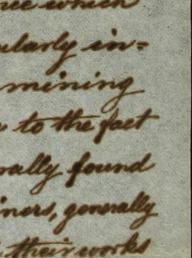 which
ularly in=
mining
to the fact
rally found
iners, generally
their works